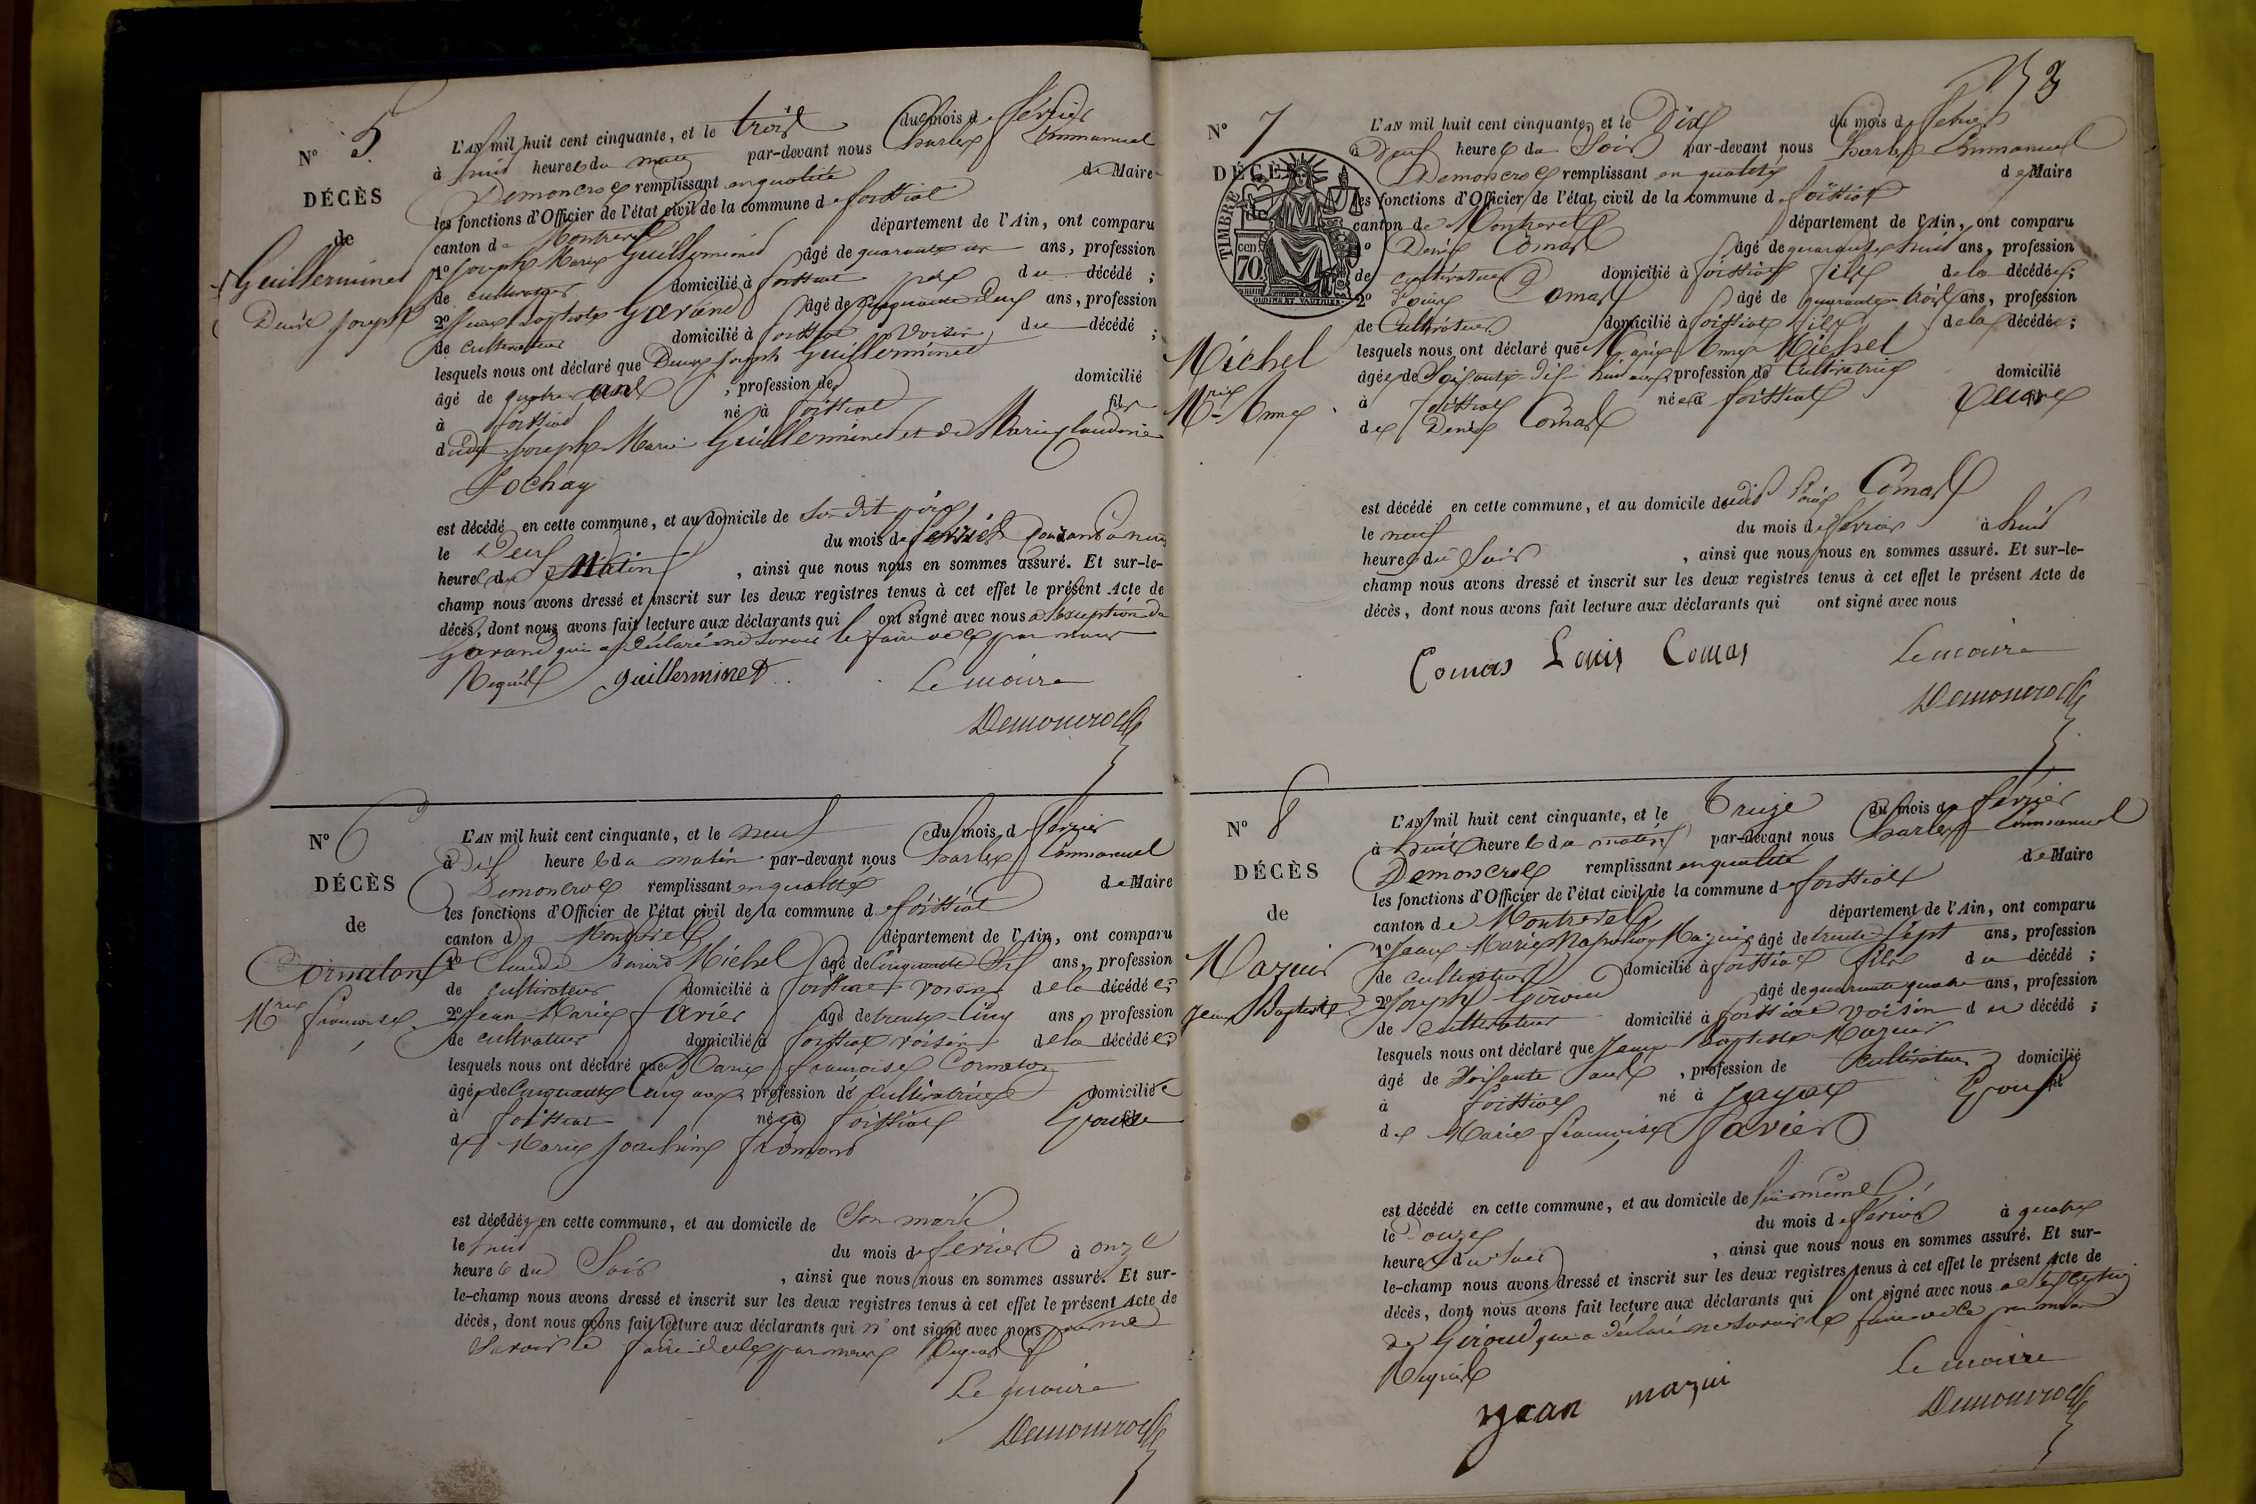 N° 5
DÉCÈS
de
Guillerminet
Denis Joseph
L'AN mil huit cent cinquante, et le trois du mois de février
à huit heures du matin par-devant nous Charles Emmanuel
Demoncroc remplissant en qualité de Maire
les fonctions d'Officier de l'état civil de la commune de foissiat
canton de Montrevel département de l'Ain, ont comparu
1° Joseph Marie Guillerminet âgé de quarante un ans, profession
de cultivateur domicilié à foissiat père du décédé ;
2° Jean Baptiste Gavand âgé de cinquante deux ans, profession
de cultivateur domicilié à foissiat voisin du décédé ;
lesquels nous ont déclaré que Denis Joseph Guillerminet
âgé de quatre ans, profession de domicilié
à foissiat né à foissiat fils
dudit Joseph Marie Guillerminet et de Marie Claudine
Lochay
est décédé en cette commune, et au domicile de son dit père
le Deux du mois de février à
heures du Matin, ainsi que nous nous en sommes assuré. Et sur-le-
champ nous avons dressé et inscrit sur les deux registres tenus à cet effet le présent Acte de
décès, dont nous avons fait lecture aux déclarants qui ont signé avec nous à l'exception de
Gavand qui a déclaré ne savoir le faire de ce par nous
Requis guillerminet Le maire
Demoncroc
N° 6
DÉCÈS
de
Cormaton
Mrie françoise
L'AN mil huit cent cinquante, et le neuf du mois d février
à Dix heures du matin par-devant nous Charles Emmanuel
Demoncroc remplissant en qualité de Maire
les fonctions d'Officier de l'état civil de la commune de foissiat
canton de Montrevel département de l'Ain, ont comparu
1° Claude Michel âgé de Cinquante ans, profession
de cultivateur domicilié à foissiat voisin de la décédée ;
2° Jean Marie favier âgé de trente-cinq ans, profession
de cultivateur domicilié à foissiat voisin de la décédée ;
lesquels nous ont déclaré que Marie françoise Cormaton
âgée de Cinquante Cinq ans, profession de cultivatrice domiciliée
à foissiat née à foissiat Epouse
de Marie Joachim fromont
est décédée en cette commune, et au domicile de Son mari
le huit du mois de février à onze
heures du Soir, ainsi que nous nous en sommes assuré. Et sur-
le-champ nous avons dressé et inscrit sur les deux registres tenus à cet effet le présent Acte de
décès, dont nous avons fait lecture aux déclarants qui n'ont signé avec nous pour ne
Savoir le faire de ce par nous Requis
Le maire
Demoncroc
53
N° 7
DÉCÈS
TIMBRE
cen 70
Michel
Mrie Anne
L'AN mil huit cent cinquante, et le Dix du mois de février
à Deux heures du Soir par-devant nous Charles Emmanuel
Demoncroc remplissant en qualité de Maire
les fonctions d'Officier de l'état civil de la commune de foissiat
canton de Montrevel département de l'Ain, ont comparu
1° Denis Comas âgé de quarante huit ans, profession
de cultivateur domicilié à foissiat fils de la décédée ;
2° Louis Comas âgé de quarante-trois ans, profession
de Cultivateur domicilié à foissiat fils de la décédée ;
lesquels nous ont déclaré que Marie Anne Michel
âgée de Soixante-dix-huit ans, profession de Cultivatrice domicilié
à foissiat née à foissiat Veuve
de Denis Comas
est décédé en cette commune, et au domicile dudit Louis Comas
le neuf du mois de février à huit
heures du Soir, ainsi que nous nous en sommes assuré. Et sur-le-
champ nous avons dressé et inscrit sur les deux registres tenus à cet effet le présent Acte de
décès, dont nous avons fait lecture aux déclarants qui ont signé avec nous
Comas Louis Comas Le maire
Demoncroc
N° 8
DÉCÈS
de
Mazuir
Jean Baptiste
L'AN mil huit cent cinquante, et le Treize du mois de février
à huit heures du matin par-devant nous Charles Emmanuel
Demoncroc remplissant en qualité de Maire
les fonctions d'Officier de l'état civil de la commune de foissiat
canton de Montrevel département de l'Ain, ont comparu
1° Jean Marie Napoléon Mazuir âgé de trente sept ans, profession
de cultivateur domicilié à foissiat fils du décédé ;
2° Joseph Giroud âgé de quarante quatre ans, profession
de cultivateur domicilié à foissiat voisin du décédé ;
lesquels nous ont déclaré que Jean Baptiste Mazuir
âgé de Soixante ans, profession de cultivateur domicilié
à foissiat né à Jayat Epoux
de Marie françoise favier
est décédé en cette commune, et au domicile de lui même
le Douze du mois de février à quatre
heures du soir, ainsi que nous nous en sommes assuré. Et sur-
le-champ nous avons dressé et inscrit sur les deux registres tenus à cet effet le présent Acte de
décès, dont nous avons fait lecture aux déclarants qui ont signé avec nous à l'exception
de Giroud qui a déclaré ne savoir le faire de ce par nous
Requis
jean mazui Le maire
Demoncroc